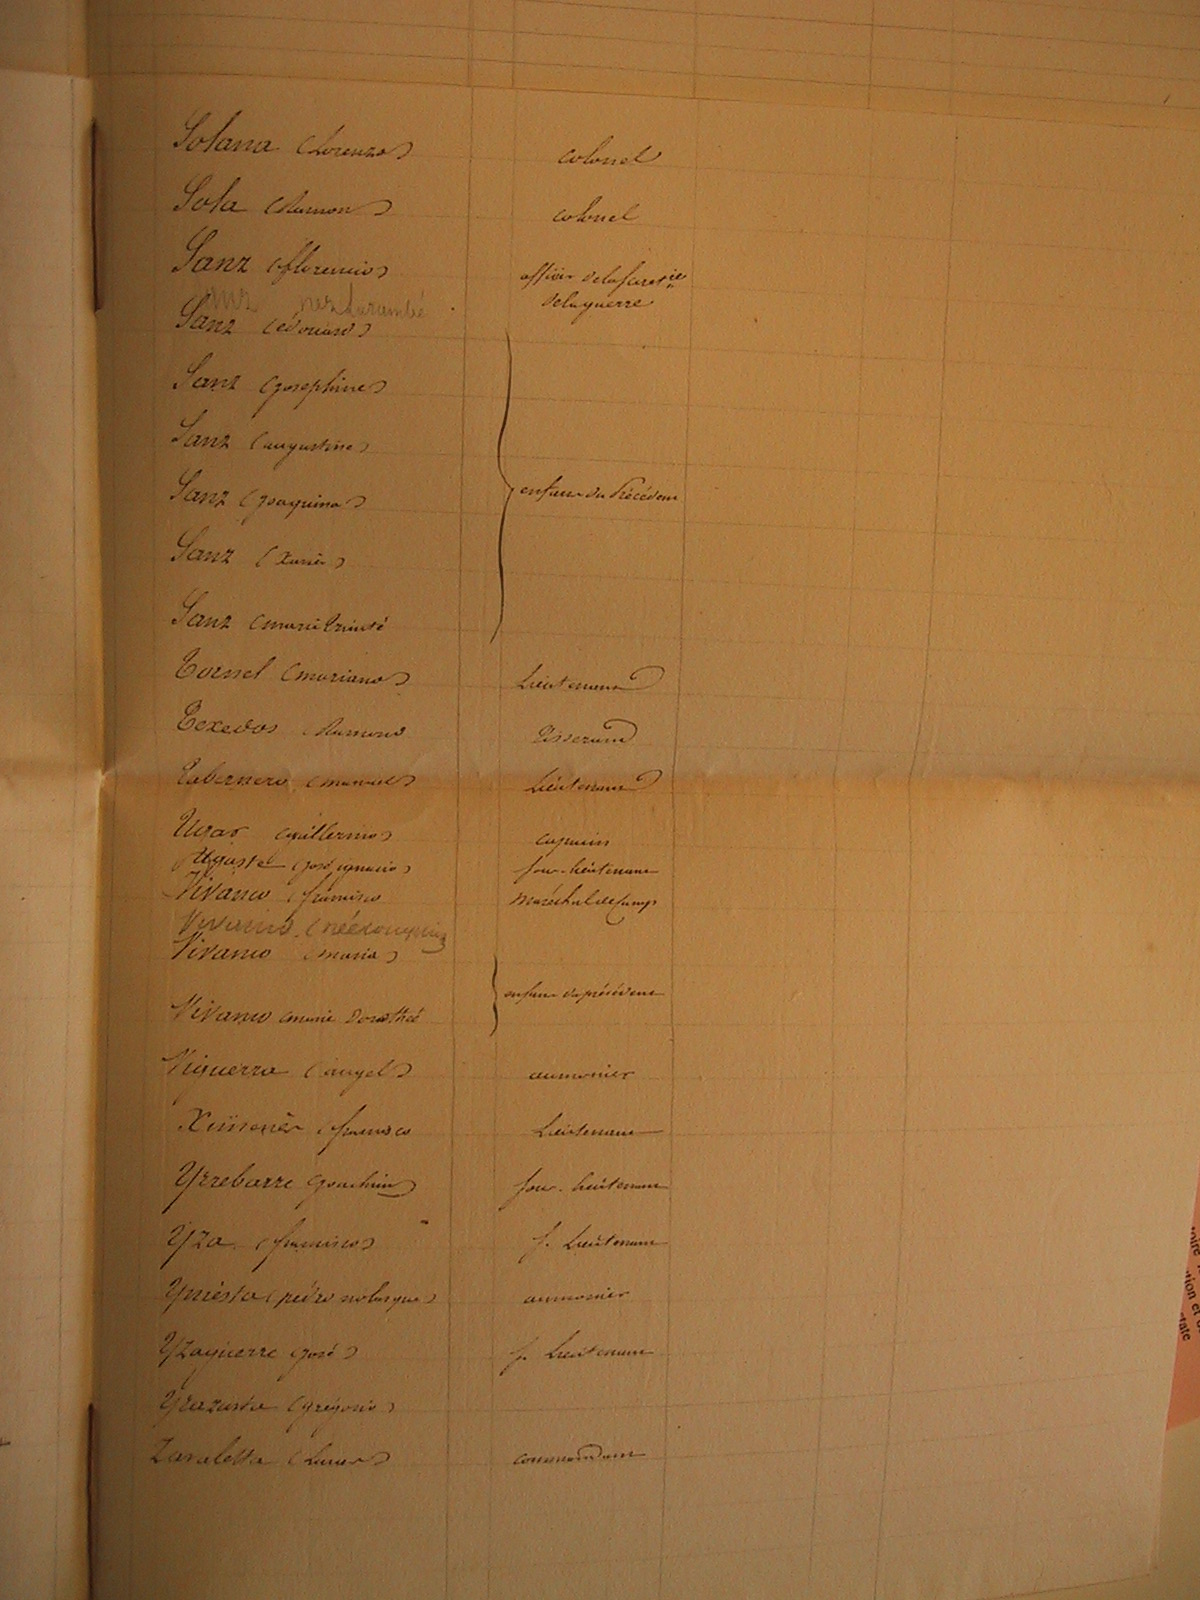 Solana (Lorenzo) colonel
Sola (Ramon) colonel
Sanz (florencio) officier de la Secret.ie
de la guerre
Sanz née
Sanz (édouard)
Sanz (Josephine)
Sanz (augustine)
Sanz (Joaquina) enfans du Précédent
Sanz (Xavier)
Sanz (marie Trinité
Tornel (mariano) Lieutenant
Texedos (Ramond Tisserand
Tabernero (manuel) Lieutenant
(guillermo) capitain
Ugaste (José ignacio) sous-lieutenant
Vivanco (francisco maréchal de Camp
Vivanco (née
Vivanco (maria)
enfans du précédent
Vivanco (marie Dorothée
Viguerra (angel) aumonier
Ximenès (francisco Lieutenant
Yrrebarre (Joachim) sous-lieutenant
Yza (francisco) s. Lieutenant
Yniesta (pédro nolasque) aumonier
Yzaguerre (José) s. Lieutenant
Yrazusta (grégorio)
Zavaletta commandant